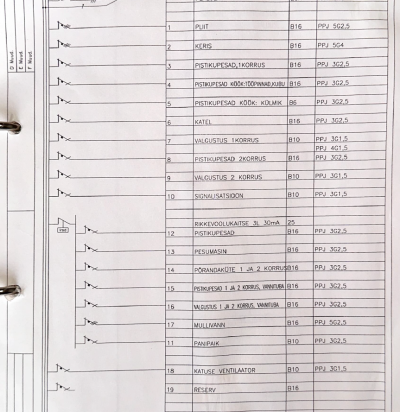 1 PLIIT B16 PPJ 5G2,5
2 KERIS B16 PPJ 5G4
3 PISTIKUPESAD,1KORRUS B16 PPJ 3G2,5
4 PISTIKUPESAD KÖÖK:TÖÖPINNAD,KUBU B16 PPJ 3G2,5
5 PISTIKUPESAD KÖÖK: KÜLMIK B6 PPJ 3G2,5
6 KATEL B16 PPJ 3G2,5
7 VALGUSTUS 1KORRUS B10 PPJ 3G1,5
PPJ 4G1,5
8 PISTIKUPESAD 2KORRUS B16 PPJ 3G2,5
9 VALGUSTUS 2 KORRUS B10 PPJ 3G1,5
10 SIGNALISATSIOON B10 PPJ 3G1,5
RIKKEVOOLUKAITSE 3L 30mA 25
12 PISTIKUPESAD B16 PPJ 3G2,5
13 PESUMASIN B16 PPJ 3G2,5
14 PÕRANDAKÜTE 1 JA 2 KORRUS B16 PPJ 3G2,5
15 PISTIKUPESAD 1 JA 2 KORRUS, VANNITUBA B16 PPJ 3G2,5
16 VALGUSTUS 1 JA 2 KORRUS, VANNITUBA B16 PPJ 3G2,5
17 MULLIVANN B16 PPJ 5G2,5
11 PANIPAIK B10 PPJ 3G2,5
18 KATUSE VENTILAATOR B10 PPJ 3G1,5
19 RESERV B16